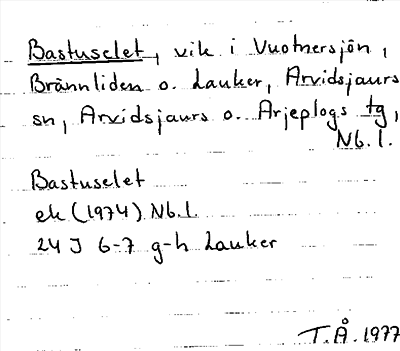 Bastuselet, vik i Vuotnersjön,
Brännliden o. Lauker, Arvidsjaurs
sn, Arvidsjaurs o. Arjeplogs tg,
Nb. l.
Bastuselet
ek (1974) Nb. l.
24 J 6-7 g-h Lauker
T.Å. 1977